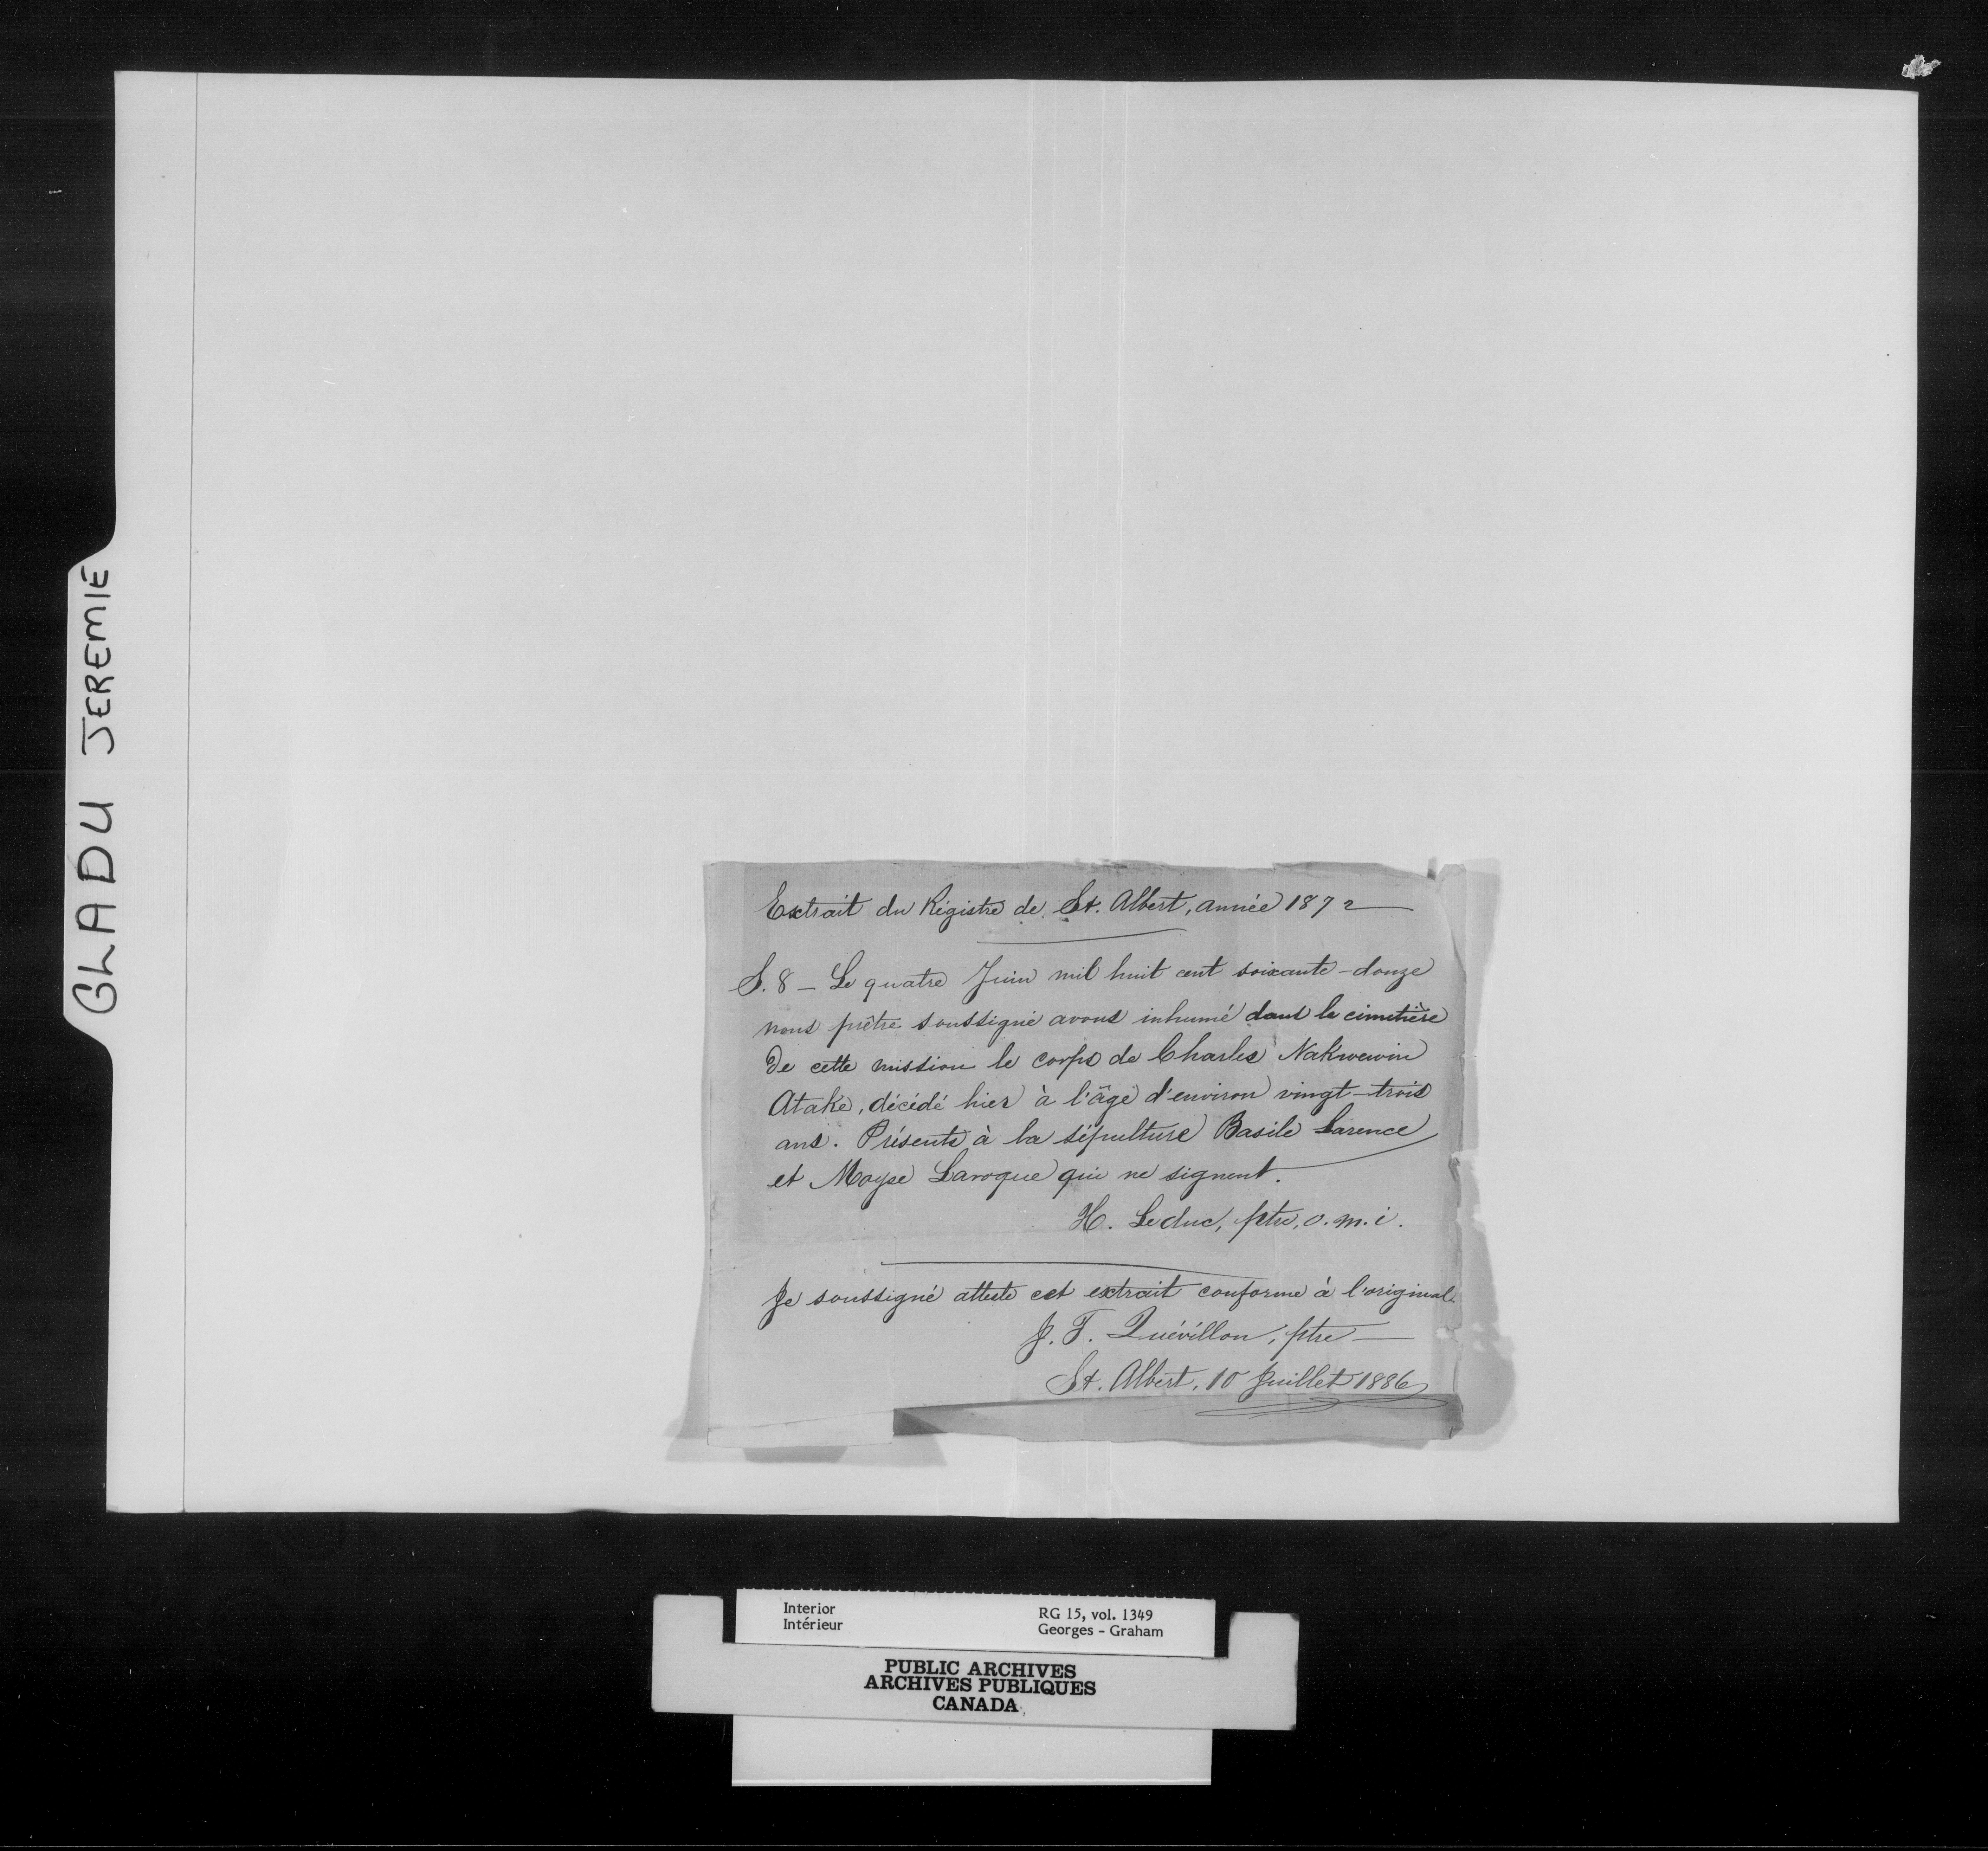 GLADU JEREMIE
Extrait du Régistre de St. Albert, année 1872
S. 8 - Le quatre Juin mil huit cent soixante-douze
nous prêtre soussigné avons inhumé dans le cimetière
de cette mission le corps de Charles Nakwewin
Atake, décédé hier à l'âge d'environ vingt-trois
ans. Présents à la sépulture Basile Larence
et Moyse Laroque qui ne signent.
H. Leduc, ptre, o.m.i.
Je soussigné atteste cet extrait conforme à l'original
J. F. Quévillon, ptre
St. Albert, 10 Juillet 1886
Interior
Intérieur
RG 15, vol. 1349
Georges - Graham
PUBLIC ARCHIVES
ARCHIVES PUBLIQUES
CANADA